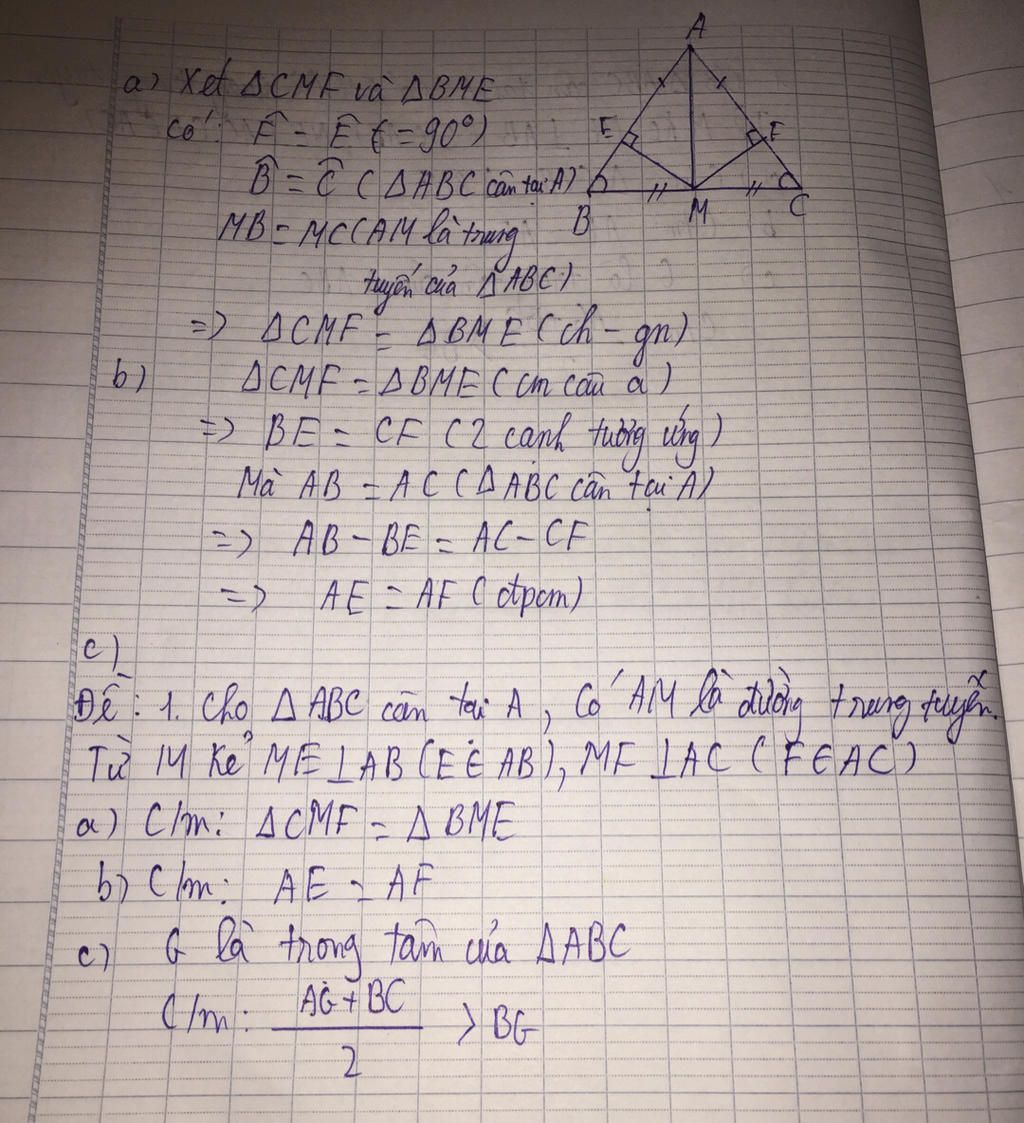 A
a) Xét ΔCMF và ΔBME
Có: F̂ = Ê (= 90°)
E F
B̂ = Ĉ (ΔABC cân tại A)
B M C
MB = MC (AM là trung
tuyến của ΔABC)
=> ΔCMF = ΔBME (ch - gn)
b) ΔCMF = ΔBME (cm câu a)
=> BE = CF (2 cạnh tương ứng)
Mà AB = AC (ΔABC cân tại A)
=> AB - BE = AC - CF
=> AE = AF (đpcm)
c)
Đề: 1. Cho ΔABC cân tại A, Có AM là đường trung tuyến.
Từ M kẻ ME ⊥ AB (E ∈ AB), MF ⊥ AC (F ∈ AC)
a) C/m: ΔCMF = ΔBME
b) C/m: AE = AF
c) G là trọng tâm của ΔABC
C/m: AG + BC / 2 > BG